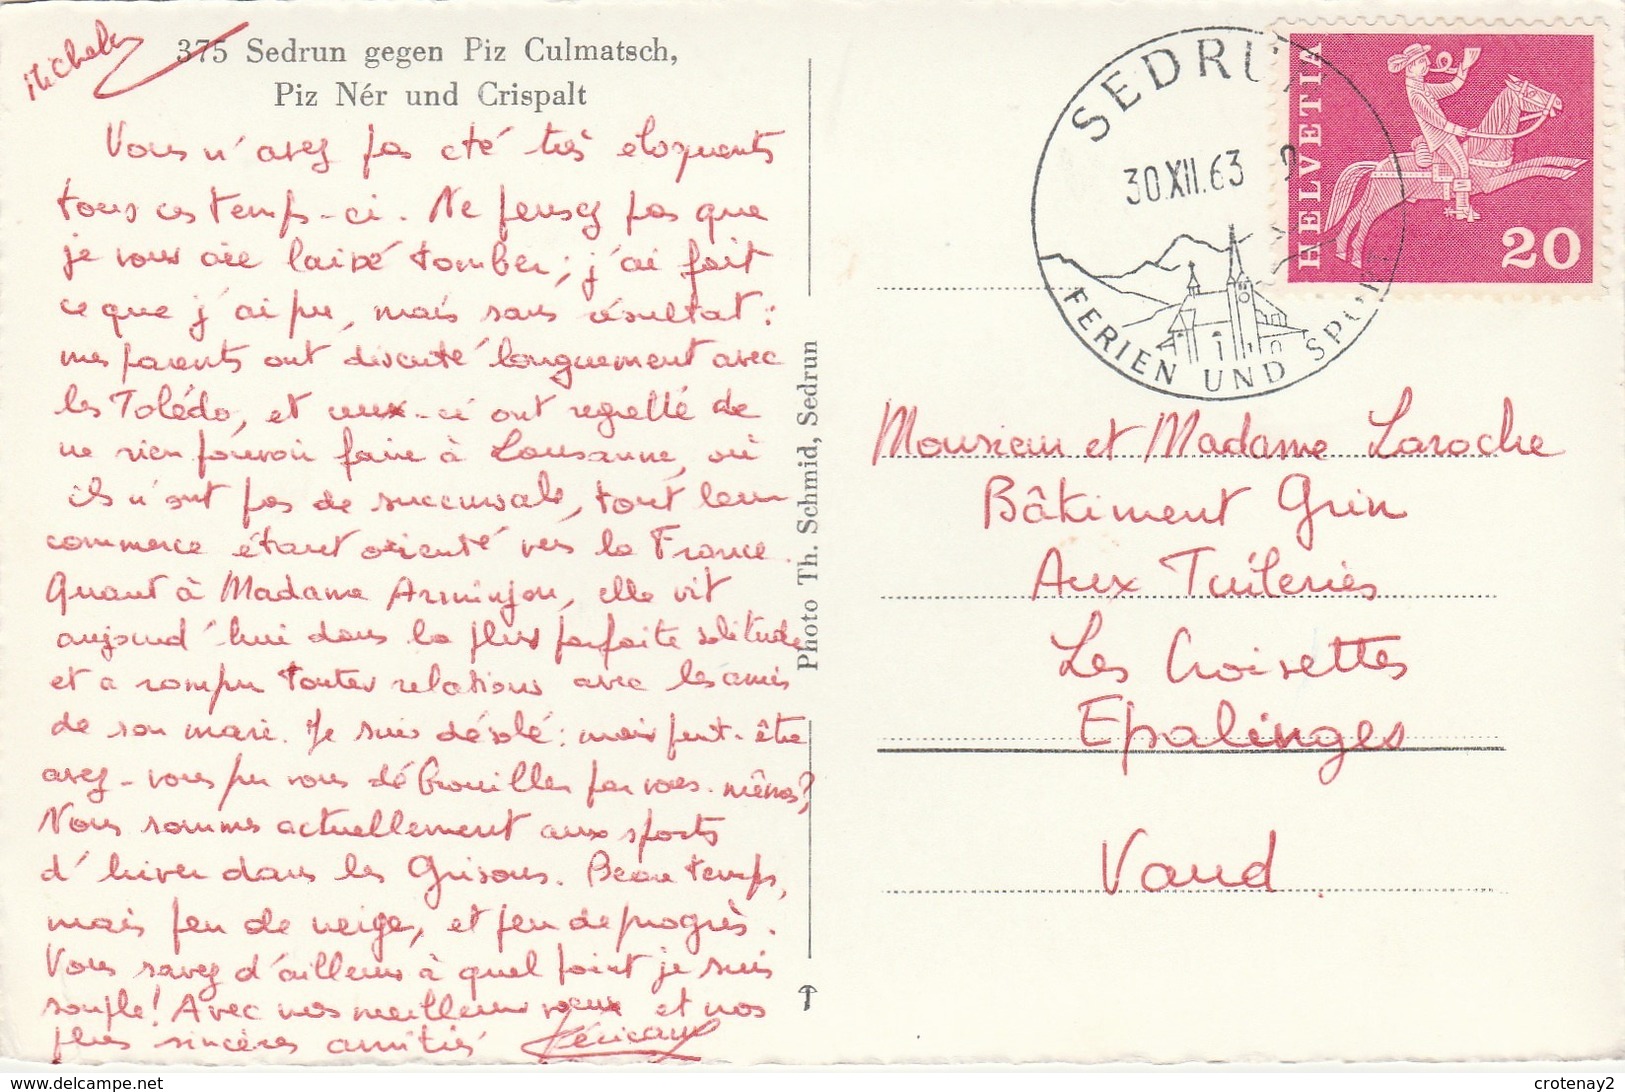 375 Sedrun gegen Piz Culmatsch,
Piz Nér und Crispalt
Vous n'avez pas été très éloquents
tous ces temps-ci. Ne pensez pas que
je vous aie laissé tomber; j'ai fait
ce que j'ai pu, mais sans résultat:
mes parents ont discuté longuement avec
les Tolédo, et ceux-ci ont regretté de
ne rien pouvoir faire à Lausanne, où
ils n'ont pas de succursale, tout leur
commerce étant orienté vers la France.
Quant à Madame Arminjon, elle vit
aujourd'hui dans la plus parfaite solitude
et a rompu toutes relations avec les amis
de son mari. Je suis désolé: mais peut-être
avez-vous pu vous débrouiller par vous-mêmes?
Nous sommes actuellement aux sports
d'hiver dans les Grisons. Beau temps,
mais peu de neige, et peu de progrès.
Vous savez d'ailleurs à quel point je suis
souple! Avec nos meilleurs voeux et nos
plus sincères amitiés
Photo Th. Schmid, Sedrun
SEDRUN
30.XII.63
FERIEN UND SPORT
HELVETIA
20
Monsieur et Madame Laroche
Bâtiment Grin
Aux Tuileries
Les Croisettes
Epalinges
Vaud
crotenay2